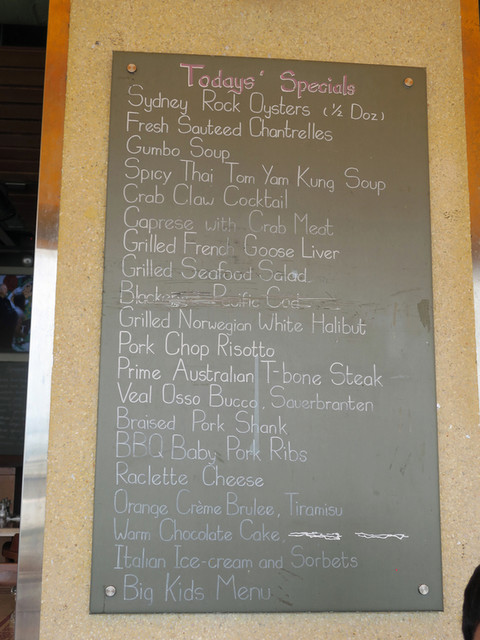 Todays' Specials
Sydney Rock Oysters (½ Doz)
Fresh Sauteed Chantrelles
Gumbo Soup
Spicy Thai Tom Yam Kung Soup
Crab Claw Cocktail
Caprese with Crab Meat
Grilled French Goose Liver
Grilled Seafood Salad
Pacific Cod
Grilled Norwegian White Halibut
Pork Chop Risotto
Prime Australian T-bone Steak
Veal Osso Bucco, Sauerbranten
Braised Pork Shank
BBQ Baby Pork Ribs
Raclette Cheese
Orange Crème Brulee, Tiramisu
Warm Chocolate Cake,
Italian Ice-cream and Sorbets
Big Kids Menu